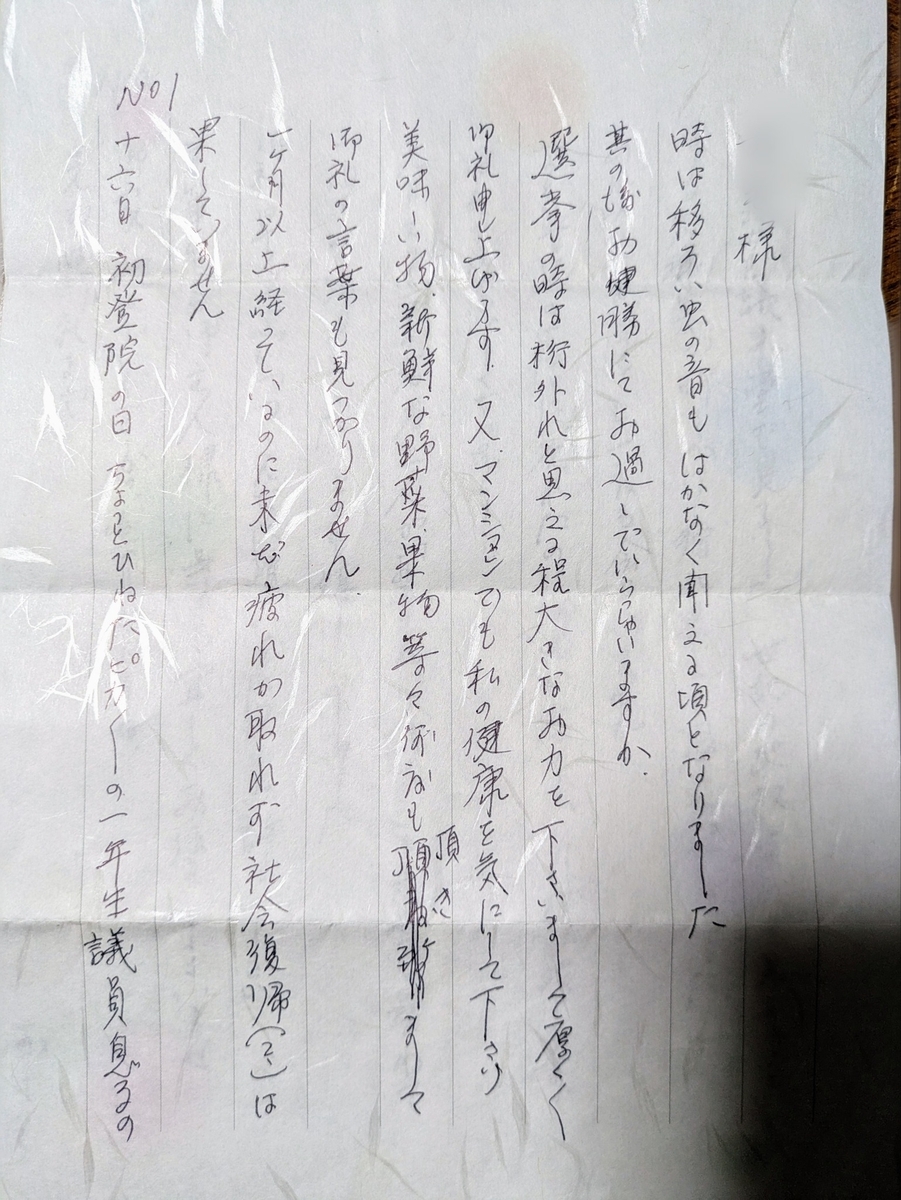 様
時は移ろい虫の音もはかなく聞える頃となりました
其の後お健勝にてお過しでいらっしゃいますか.
選挙の時は桁外れと思える程大きなお力を下さいまして厚く
御礼申し上げます. 又、マンションでも私の健康を気にして下さり
美味い物、新鮮な野菜、果物等々何度も頂きまして
御礼の言葉も見つかりません.
一ヶ月以上経っているのに未だ疲れが取れず社会復帰(?)は
果していません
十六日 初登院の日 ちょっとひねたピカ〳〵の一年生議員息子の
No1